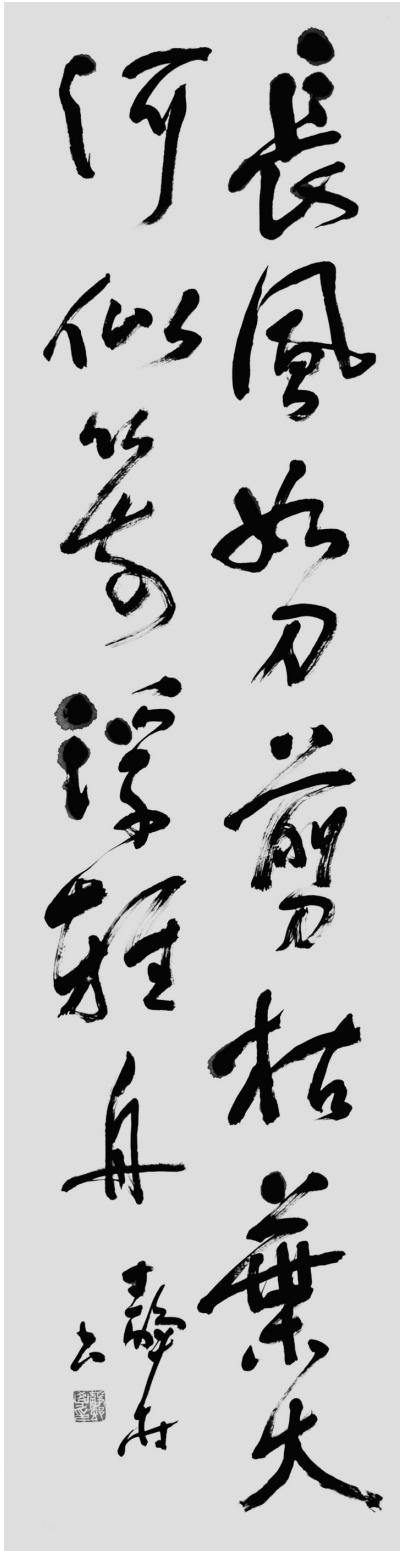 長風如刀剪枯葉大
河似箭浮輕舟
靜村
書